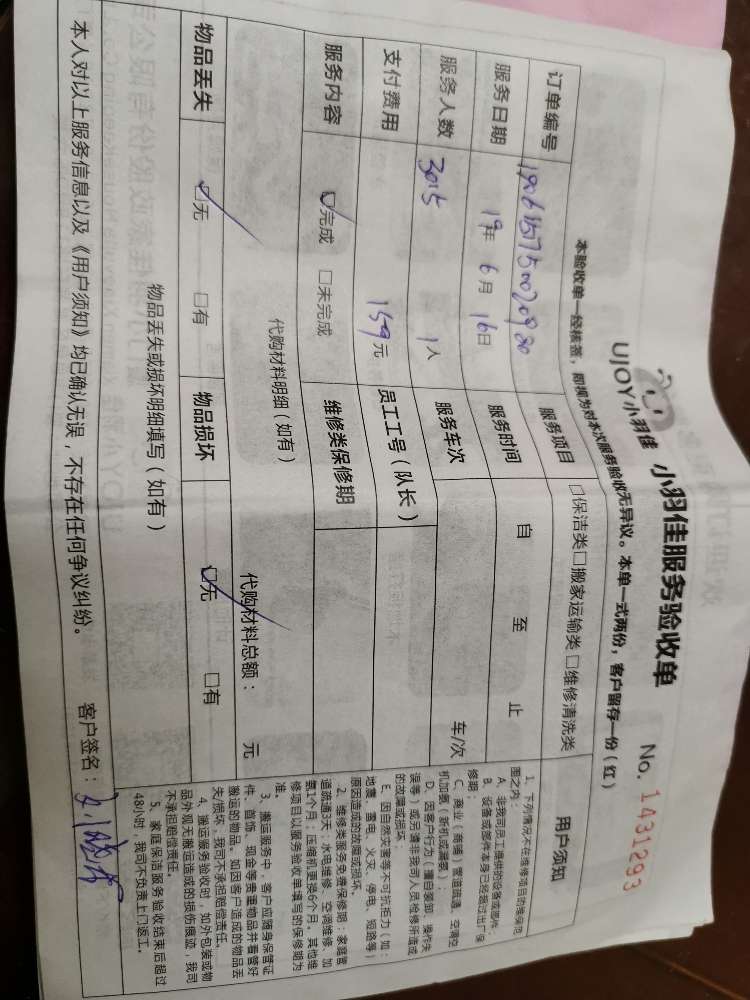 UJOY小羽佳 小羽佳服务验收单 No. 1431293
本验收单一经核签，即视为对本次服务验收无异议。本单一式两份，客户留存一份（红）
订单编号
服务项目 □保洁类□搬家运输类 □维修清洗类
服务日期 19年 6月 16日 服务时间 自 至 止
服务人数 3015 1人 服务车次 车/次
支付费用 159元 员工工号（队长）
服务内容 ☑完成 □未完成 维修类保修期
代购材料明细（如有） 代购材料总额： 元
物品丢失 ☑无 □有 物品损坏 ☑无 □有
物品丢失或损坏明细填写（如有）
用户须知
1、下列情况不在维修项目的维保范
围之内：
A、非我司员工提供的设备或部件；
B、设备或部件本身已经超过出厂保
修期；
C、商业（商铺）管道疏通、空调空
机加氟（新机或漏氟）；
D、因客户行为（擅自装卸、操作失
误等）或另请非我司人员抢修所造成
的故障或损坏。
E、因自然灾害等不可抗拒力（如：
地震、雷电、火灾、停电、短路等）
原因造成的故障或损坏。
2、维修类服务免费保修期：家庭管
道疏通3天；水电维修、空调维修、加
氟1个月；压缩机更换6个月。其他维
修项目以服务验收单填写的保修期为
准。
3、搬运服务中，客户应随身保管证
件、首饰、现金等贵重物品并看管好
搬运的物品。如因客户造成的物品丢
失损坏，我司不承担赔偿责任。
4、搬运服务验收时，如外包装或物
品外观无搬运造成的损伤痕迹，我司
不承担赔偿责任。
5、家庭保洁服务验收结束后超过
48小时，我司不负责上门返工。
本人对以上服务信息以及《用户须知》均已确认无误，不存在任何争议纠纷。 客户签名：